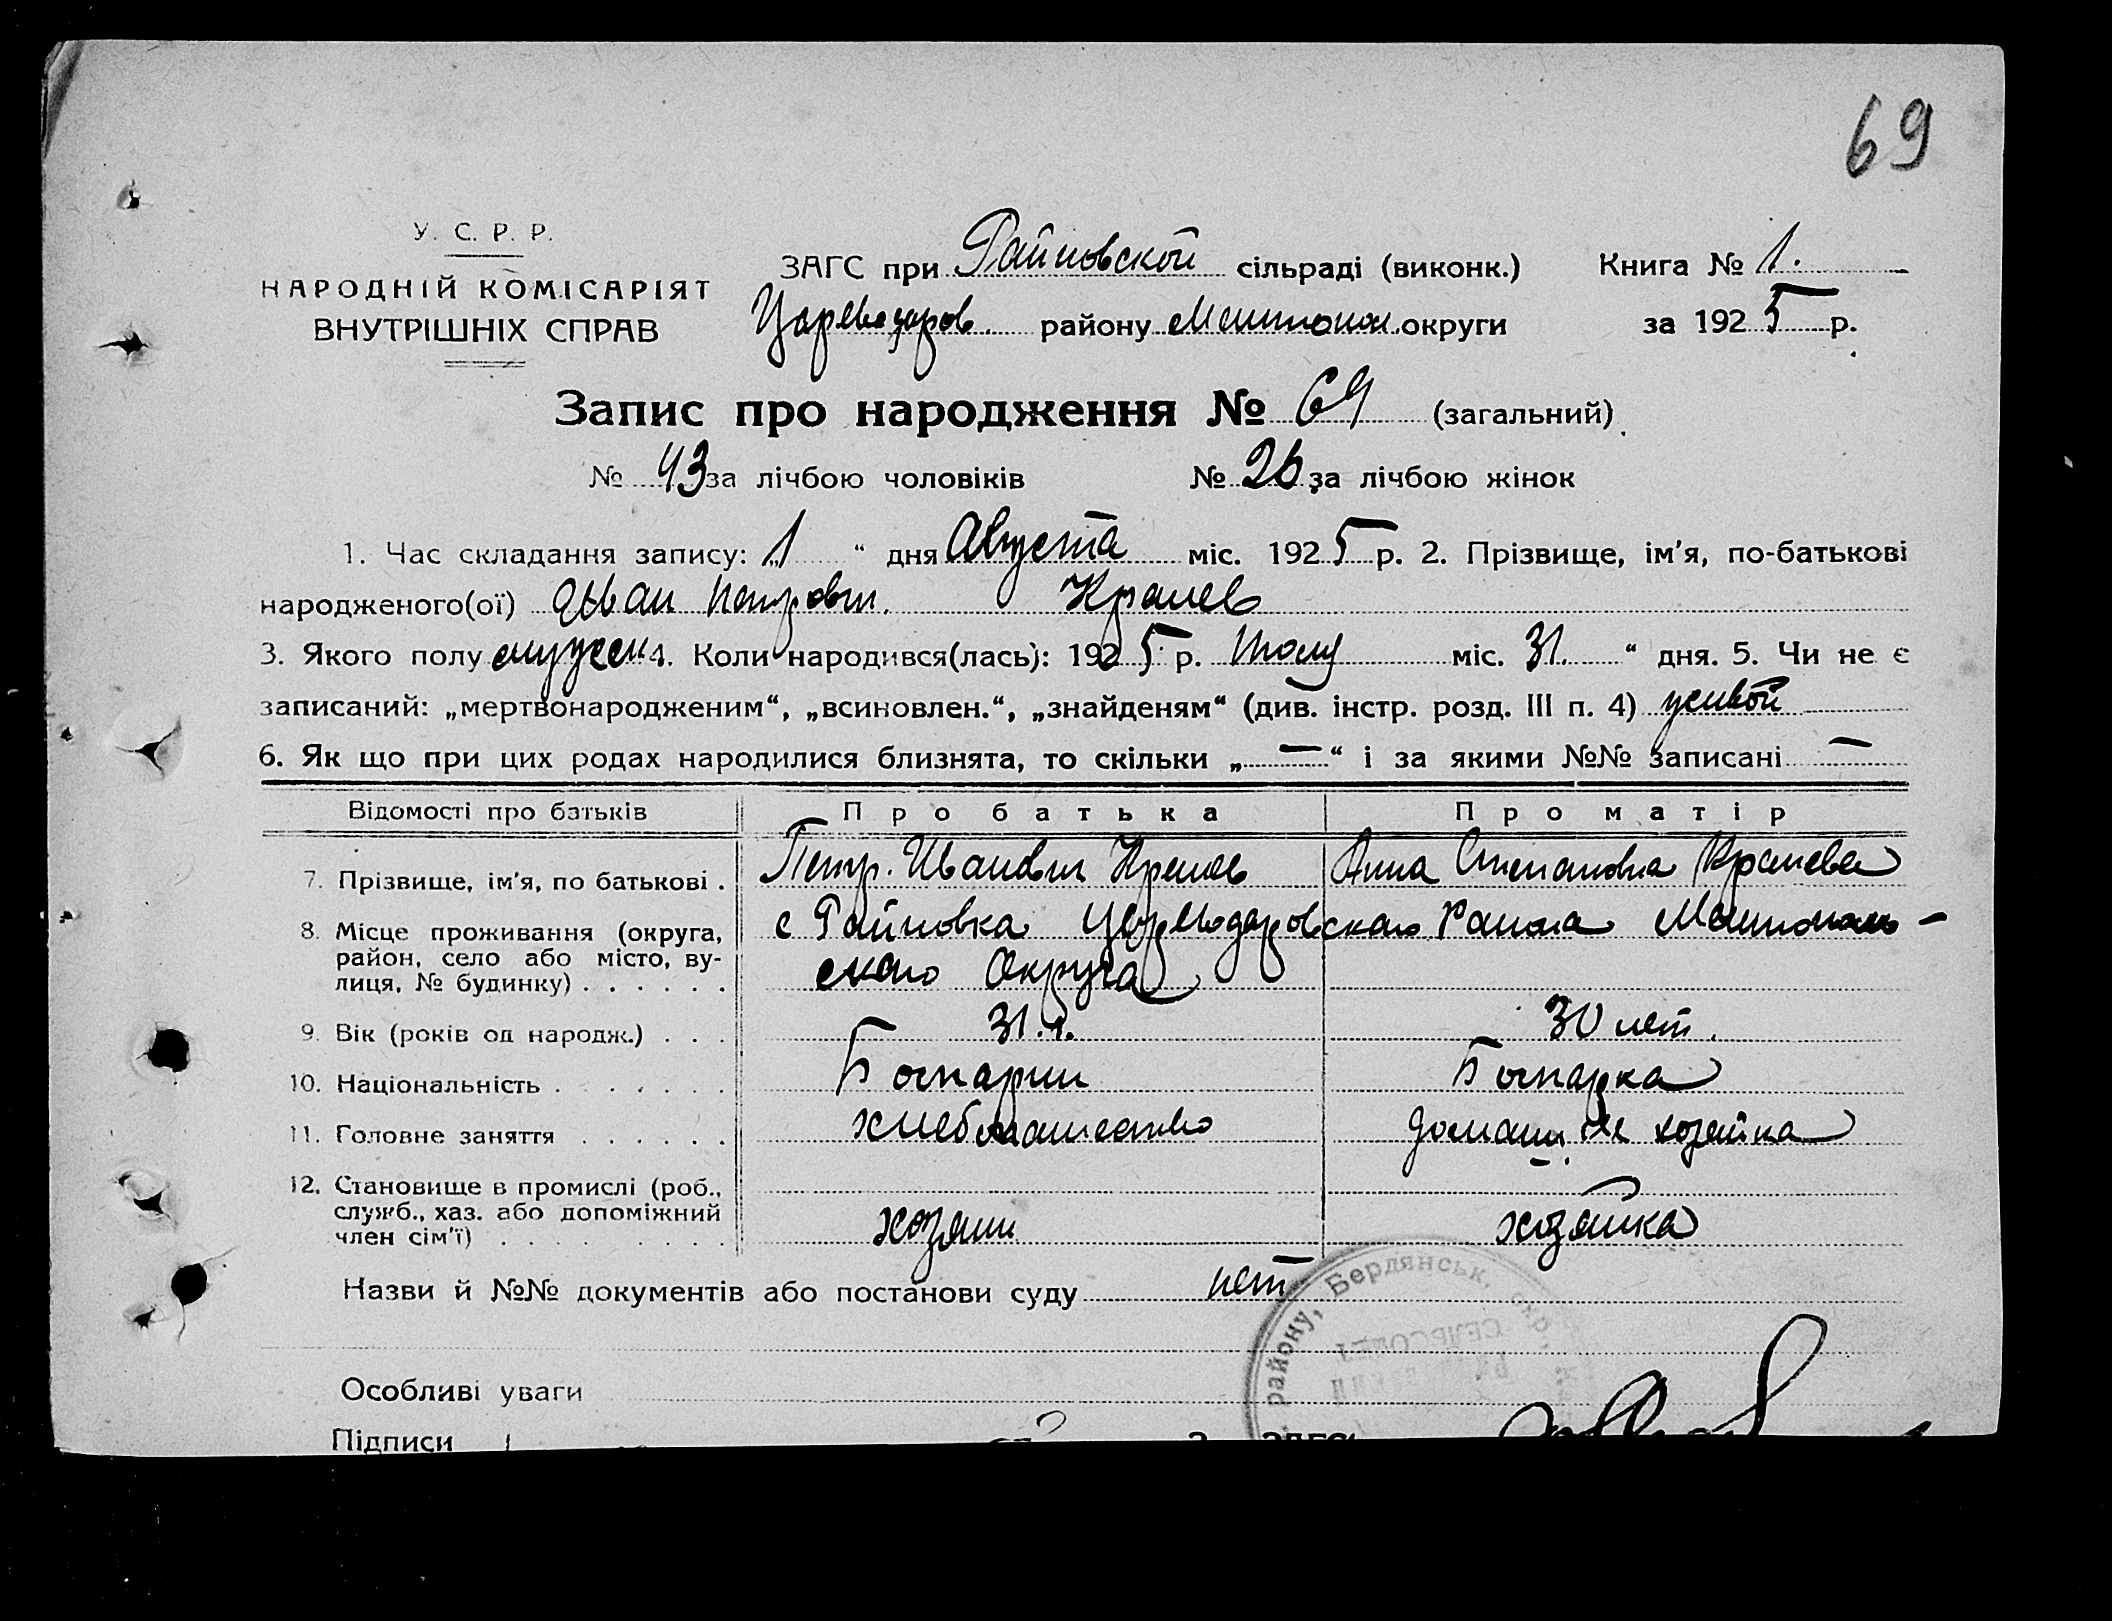 69
У. С. Р. Р.
НАРОДНІЙ КОМІСАРІЯТ
ВНУТРІШНІХ СПРАВ
ЗАГС при Райновской сільраді (виконк.) Книга № 1.
району округи за 1925 р.
Запис про народження № 69 (загальний)
№ 43 за лічбою чоловіків № 26 за лічбою жінок
1. Час складання запису: „1 “ дня Августа міс. 1925 р. 2. Прізвище, ім'я, по-батькові
народженого(ої) Иван Петрович Кралев
3. Якого полу мужск 4. Коли народився(лась): 1925 р. Июля міс. 31. “ дня. 5. Чи не є
записаний: „мертвонародженим“, „всиновлен.“, „знайденям“ (див. інстр. розд. III п. 4)
6. Як що при цих родах народилися близнята, то скільки „ — “ і за якими №№ записані —
Відомості про батьків Про батька Про матір
7. Прізвище, ім'я, по батькові . Петр. Иванович Кралев Анна Степановна Кралева
8. Місце проживання (округа, с Райновка Цареводаровскаго Района
район, село або місто, ву-
лиця, № будинку) . . . . . . скаго Округа
9. Вік (років од народж.) . . . 31. л. 30 лет.
10. Національність . . . . . . Болгарин Болгарка
11. Головне заняття . . . . . . хлебопашество домашн. хозяйка
12. Становище в промислі (роб.,
служб., хаз. або допоміжний
член сім'ї) . . . . . . . . хозяин хозяйка
Назви й №№ документів або постанови суду нет
району, Бердянськ. окр.
Особливі уваги
Підписи